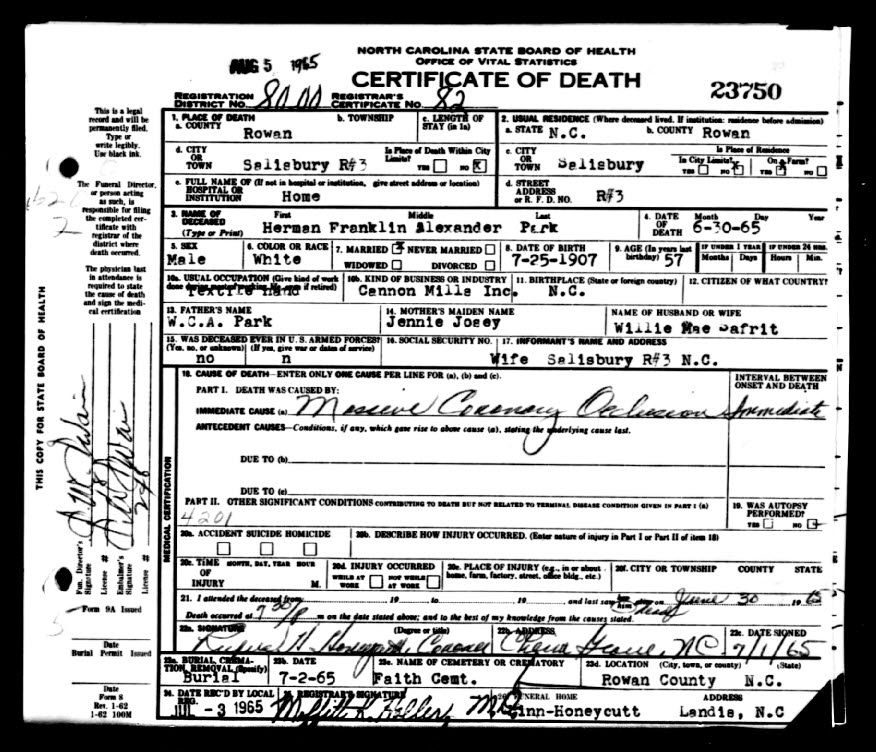 NORTH CAROLINA STATE BOARD OF HEALTH
OFFICE OF VITAL STATISTICS
AUG 5 1965
CERTIFICATE OF DEATH
23750
REGISTRATION DISTRICT NO. 80.00 REGISTRAR'S CERTIFICATE NO. 82
This is a legal record and will be permanently filed. Type or write legibly. Use black ink.
The Funeral Director, or person acting as such, is responsible for filing the completed certificate with registrar of the district where death occurred.
The physician last in attendance is required to state the cause of death and sign the medical certification
THIS COPY FOR STATE BOARD OF HEALTH
1. PLACE OF DEATH
a. COUNTY Rowan
b. TOWNSHIP
c. LENGTH OF STAY (in 1a)
2. USUAL RESIDENCE (Where deceased lived. If institution: residence before admission)
a. STATE N.C. b. COUNTY Rowan
d. CITY OR TOWN Salisbury R#3
Is Place of Death Within City Limits? YES NO X
c. CITY OR TOWN Salisbury
Is Place of Residence
In City Limits? YES NO On a Farm? YES NO
e. FULL NAME OF HOSPITAL OR INSTITUTION (If not in hospital or institution, give street address or location) Home
d. STREET ADDRESS OR R. F. D. NO. R#3
3. NAME OF DECEASED (Type or Print) First Middle Last
Herman Franklin Alexander Park
4. DATE OF DEATH Month Day Year
6-30-65
5. SEX Male
6. COLOR OR RACE White
7. MARRIED X NEVER MARRIED
WIDOWED DIVORCED
8. DATE OF BIRTH 7-25-1907
9. AGE (In years last birthday) 57
IF UNDER 1 YEAR Months Days
IF UNDER 24 HRS. Hours Min.
10a. USUAL OCCUPATION (Give kind of work done during most of working life, even if retired) Textile Hand
10b. KIND OF BUSINESS OR INDUSTRY Cannon Mills Inc.
11. BIRTHPLACE (State or foreign country) N.C.
12. CITIZEN OF WHAT COUNTRY?
13. FATHER'S NAME W.C.A. Park
14. MOTHER'S MAIDEN NAME Jennie Josey
NAME OF HUSBAND OR WIFE Willie Mae Safrit
15. WAS DECEASED EVER IN U.S. ARMED FORCES? (Yes, no, or unknown) (If yes, give war or dates of service)
no n
16. SOCIAL SECURITY NO.
17. INFORMANT'S NAME AND ADDRESS
Wife Salisbury R#3 N.C.
18. CAUSE OF DEATH—ENTER ONLY ONE CAUSE PER LINE FOR (a), (b) and (c).
INTERVAL BETWEEN ONSET AND DEATH
PART I. DEATH WAS CAUSED BY:
IMMEDIATE CAUSE (a) Massive Coronary Occlusion Immediate
ANTECEDENT CAUSES—Conditions, if any, which gave rise to above cause (a), stating the underlying cause last.
DUE TO (b)
DUE TO (c)
MEDICAL CERTIFICATION
PART II. OTHER SIGNIFICANT CONDITIONS CONTRIBUTING TO DEATH BUT NOT RELATED TO TERMINAL DISEASE CONDITION GIVEN IN PART I (a)
4201
19. WAS AUTOPSY PERFORMED?
YES NO
20a. ACCIDENT SUICIDE HOMICIDE
20b. DESCRIBE HOW INJURY OCCURRED. (Enter nature of injury in Part I or Part II of item 18)
20c. TIME OF INJURY MONTH, DAY, YEAR HOUR M.
20d. INJURY OCCURRED
WHILE AT WORK NOT WHILE AT WORK
20e. PLACE OF INJURY (e.g., in or about home, farm, factory, street, office bldg., etc.)
20f. CITY OR TOWNSHIP COUNTY STATE
21. I attended the deceased from 19 to 19 and last saw him alive on June 30 1965
Death occurred at 7 30 P m on the date stated above; and to the best of my knowledge from the causes stated.
22a. SIGNATURE (Degree or title) Coroner
22b. ADDRESS China Grove, NC
22c. DATE SIGNED 7/1/65
23a. BURIAL, CREMATION, REMOVAL (Specify) Burial
23b. DATE 7-2-65
23c. NAME OF CEMETERY OR CREMATORY Faith Cemt.
23d. LOCATION (City, town, or county) (State)
Rowan County N.C.
24. DATE REC'D BY LOCAL REG. JUL -3 1965
25. REGISTRAR'S SIGNATURE
26. FUNERAL HOME ADDRESS
Linn-Honeycutt Landis, N.C
Fun. Director's Signature
License #
Embalmer's Signature
License #
Form 9A Issued
Date
Burial Permit Issued
Date
Form 8
Rev. 1-62
1-62 100M